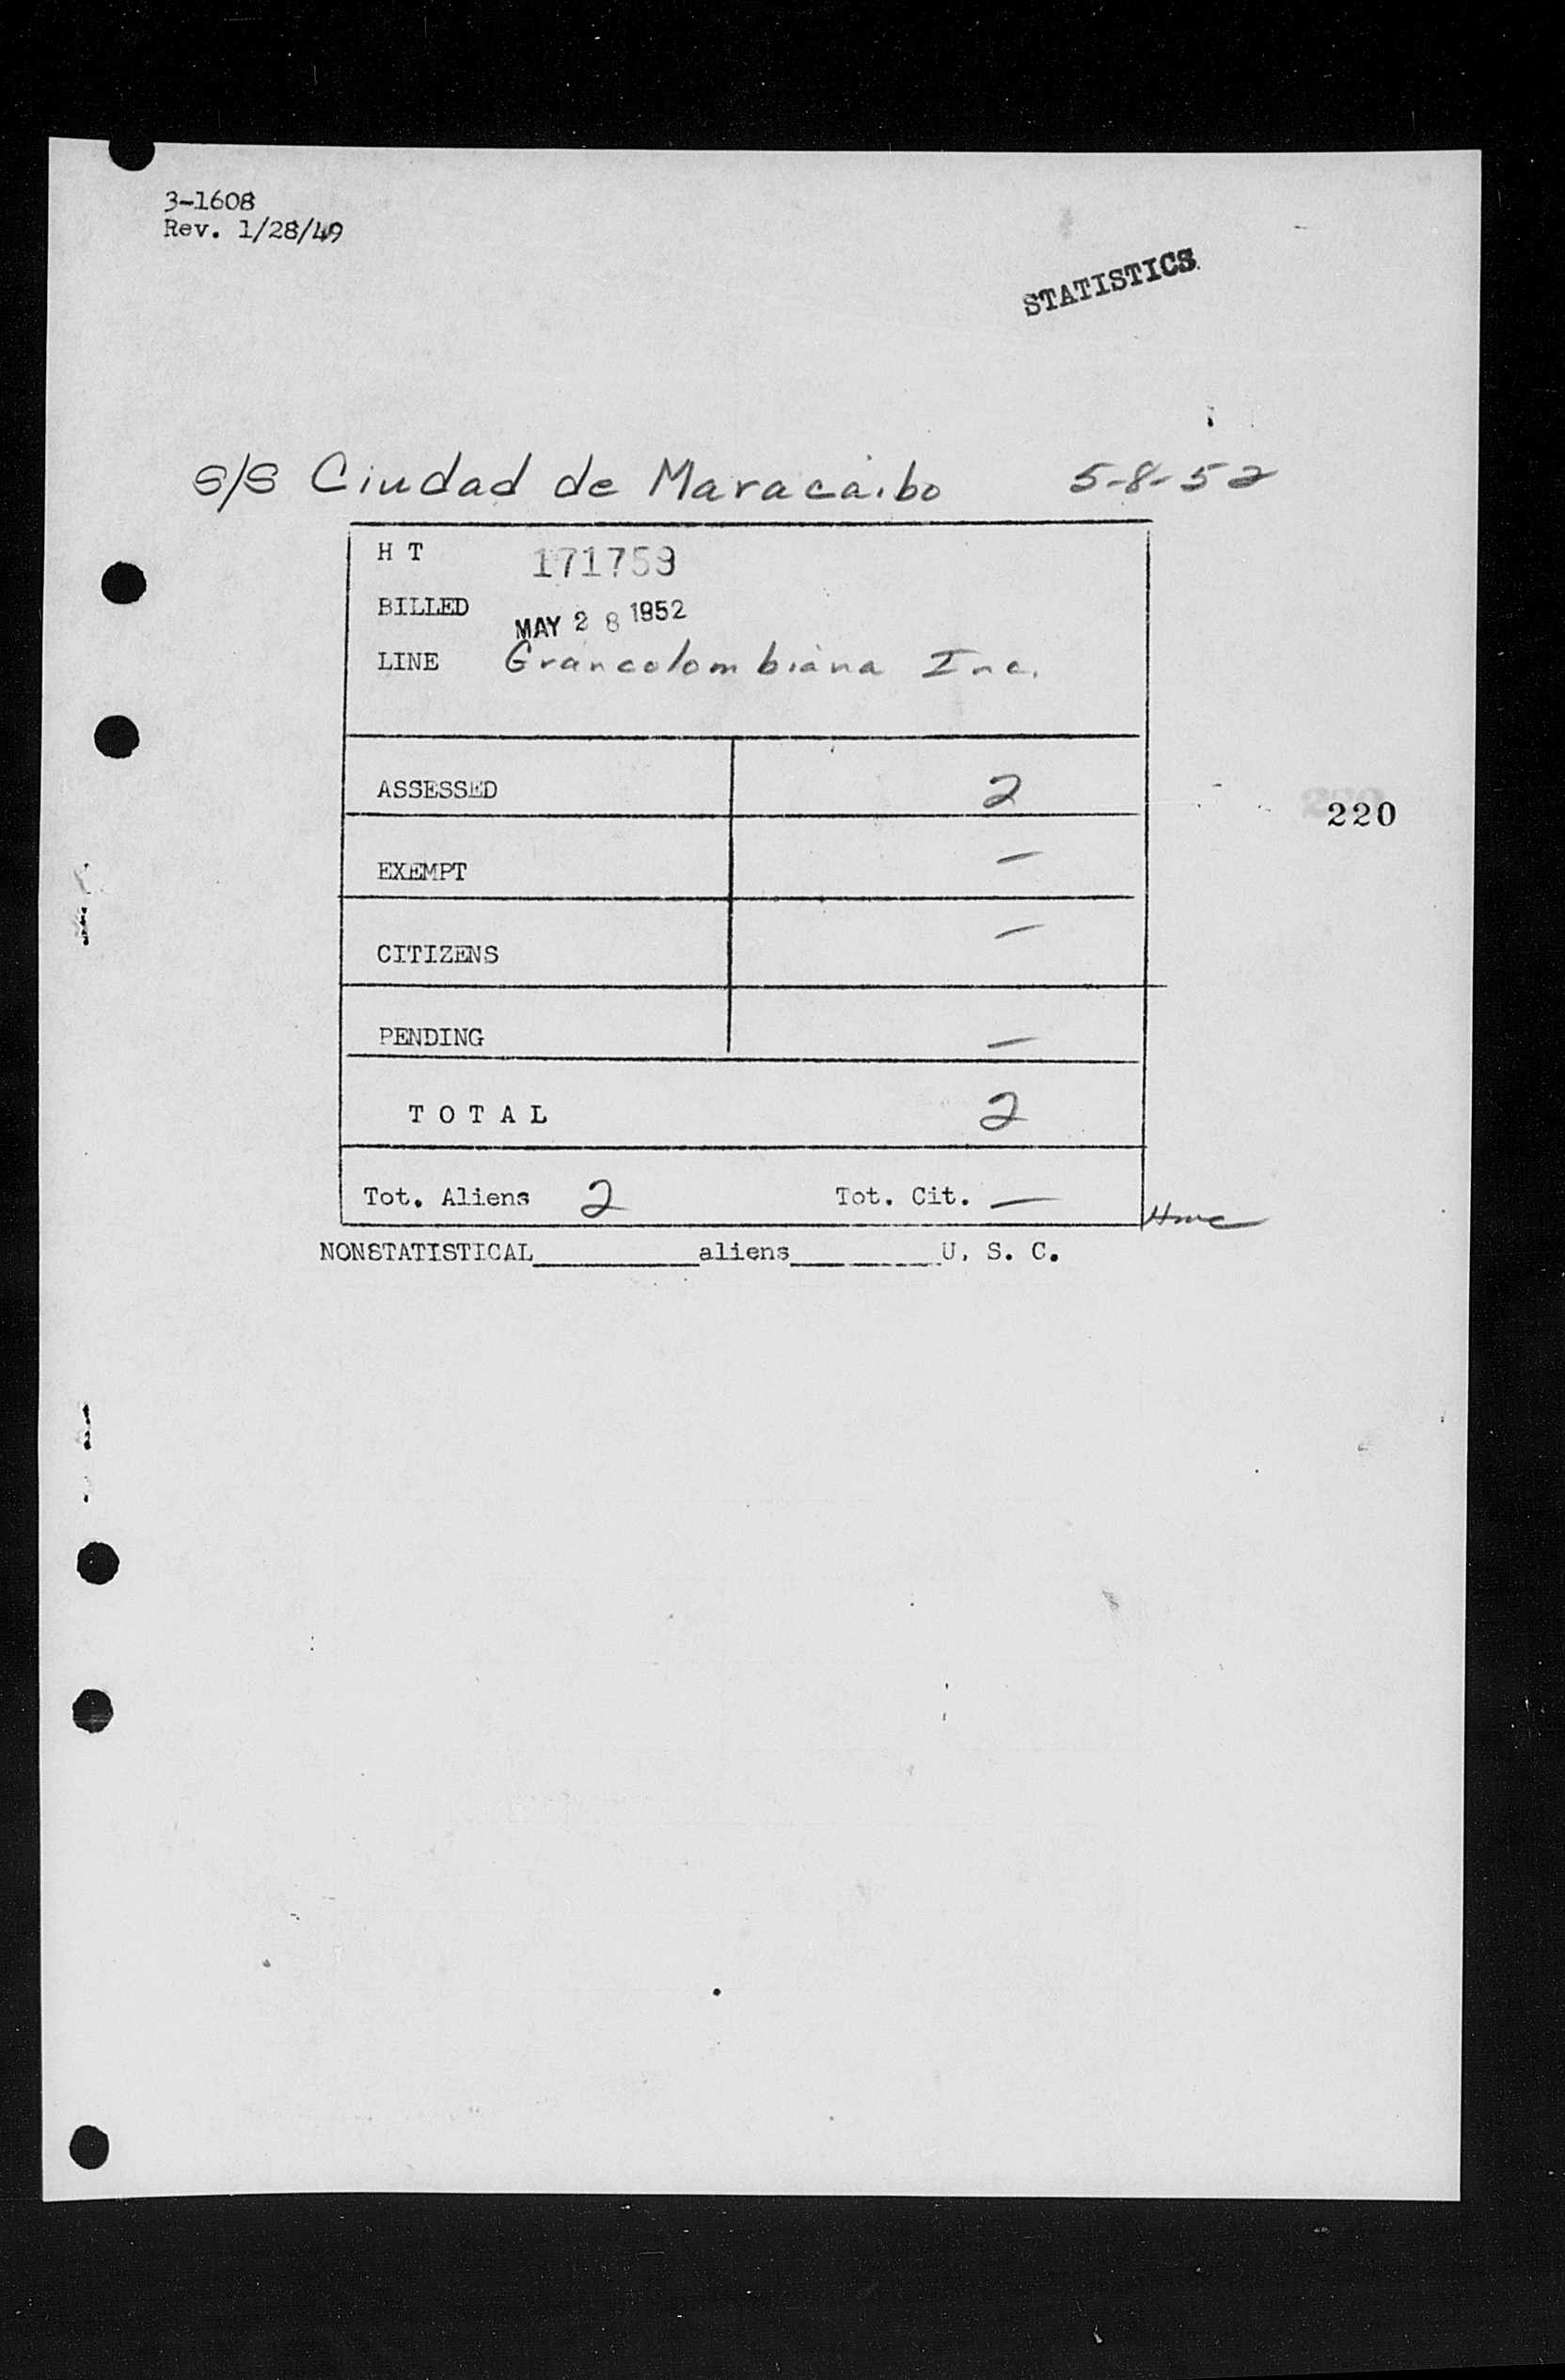 3-1608
Rev. 1/28/49
STATISTICS
S/S Ciudad de Maracaibo 5-8-52
H T 171759
BILLED MAY 28 1952
LINE Grancolombiana Inc.
ASSESSED 2
EXEMPT —
CITIZENS —
220
PENDING —
TOTAL 2
Tot. Aliens 2 Tot. Cit. —
NONSTATISTICAL__________aliens_________U. S. C.